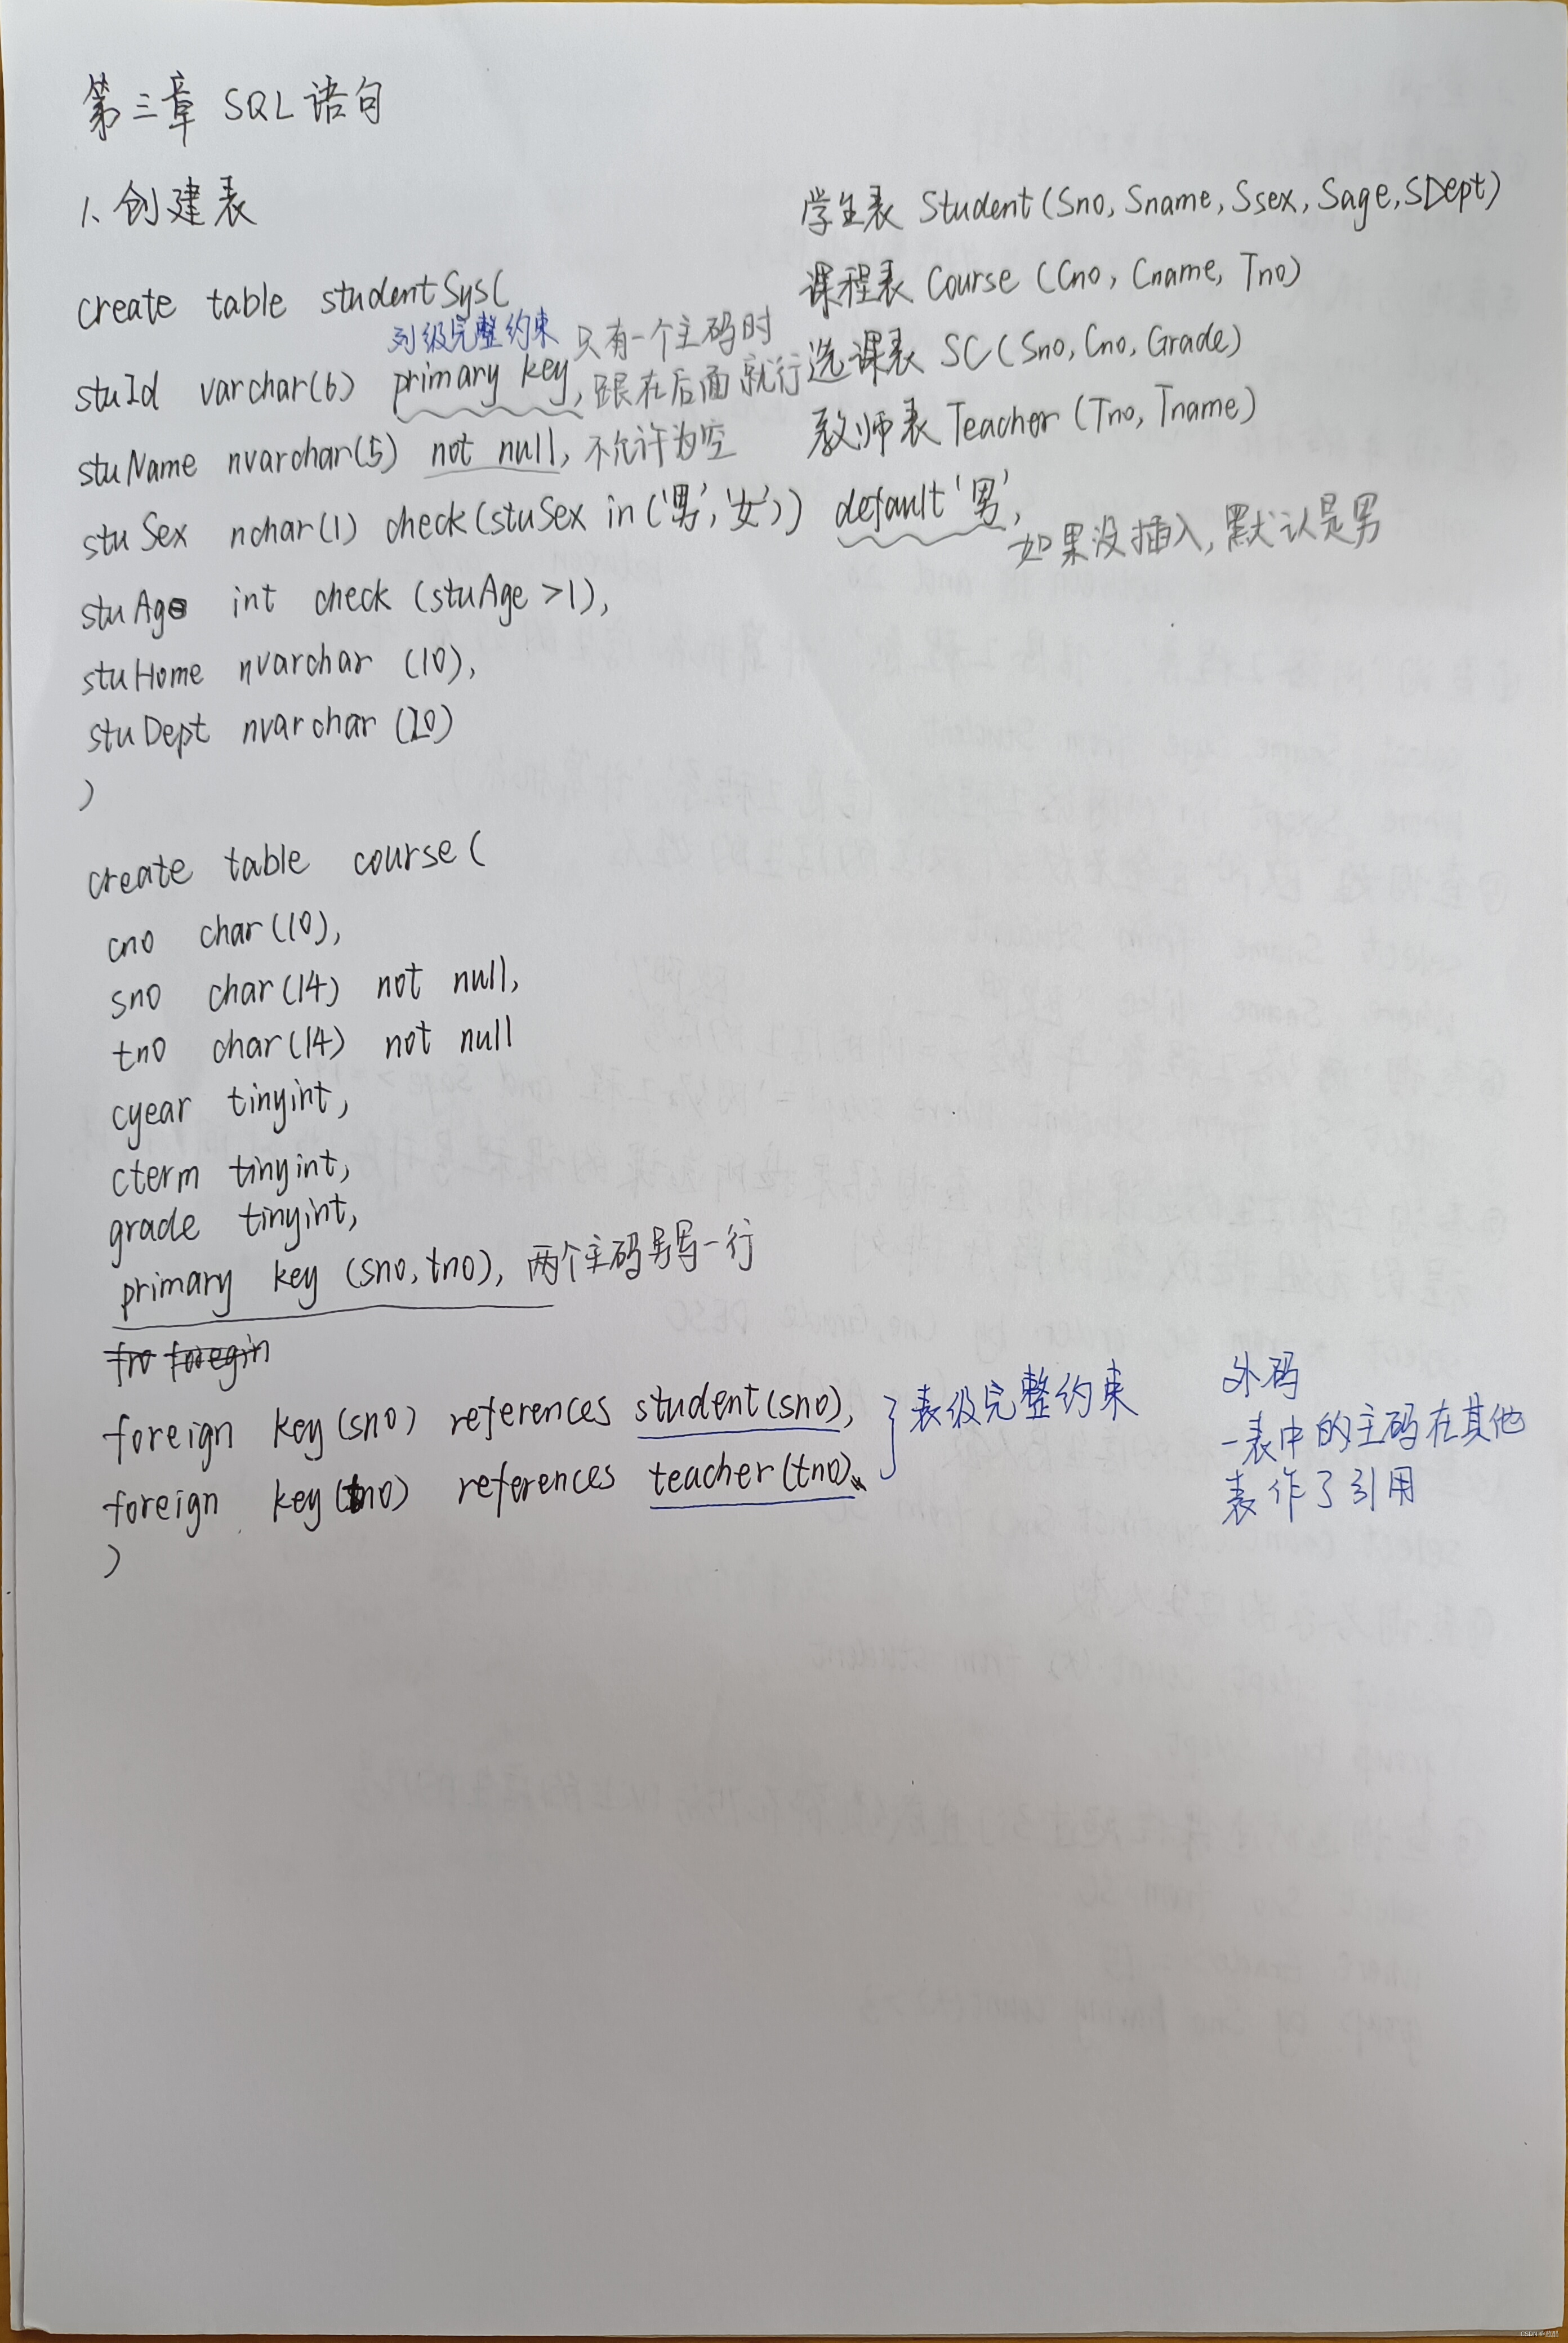 第三章 SQL 语句
1、创建表
学生表 Student(Sno, Sname, Ssex, Sage, SDept)
课程表 Course (Cno, Cname, Tno)
选课表 SC(Sno, Cno, Grade)
教师表 Teacher (Tno, Tname)
create table studentSys(
列级完整约束 只有一个主码时
stuId varchar(6) primary key, 跟在后面就行
stuName nvarchar(5) not null, 不允许为空
stuSex nchar(1) check(stuSex in('男','女')) default '男',
如果没插入,默认是男
stuAge int check (stuAge >1),
stuHome nvarchar (10),
stuDept nvarchar (10)
)
create table course (
cno char(10),
sno char(14) not null,
tno char(14) not null
cyear tinyint,
cterm tinyint,
grade tinyint,
primary key (sno, tno), 两个主码另写一行
fro foregin
foreign key(sno) references student(sno),
foreign key(tno) references teacher(tno)
)
表级完整约束
外码
一表中的主码在其他
表作了引用